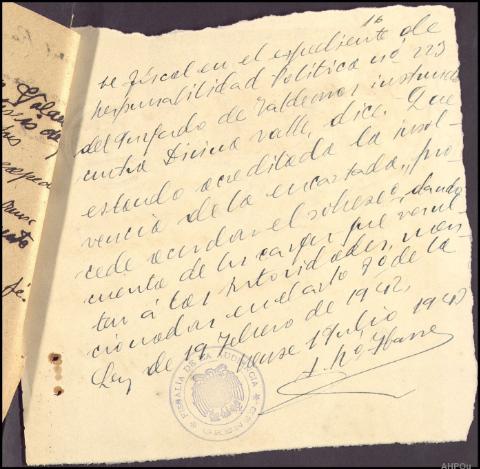 16
se fiscal en el expediente de
responsabilidad Política nº 223
del Juzgado de Valdeorras instruido
contra Divina Valle, dice: Que
estando acreditada la insol-
vencia de la encartada, pro-
cede acordar el sobreseo, dando
cuenta de los cargos que resul-
ten á las Autoridades men-
cionadas en el arto 8º de la
Ley de 19 Febrero de 1942.
Orense 1 Julio 1942
FISCALIA DE LA AUDIENCIA
ORENSE
AHPOu